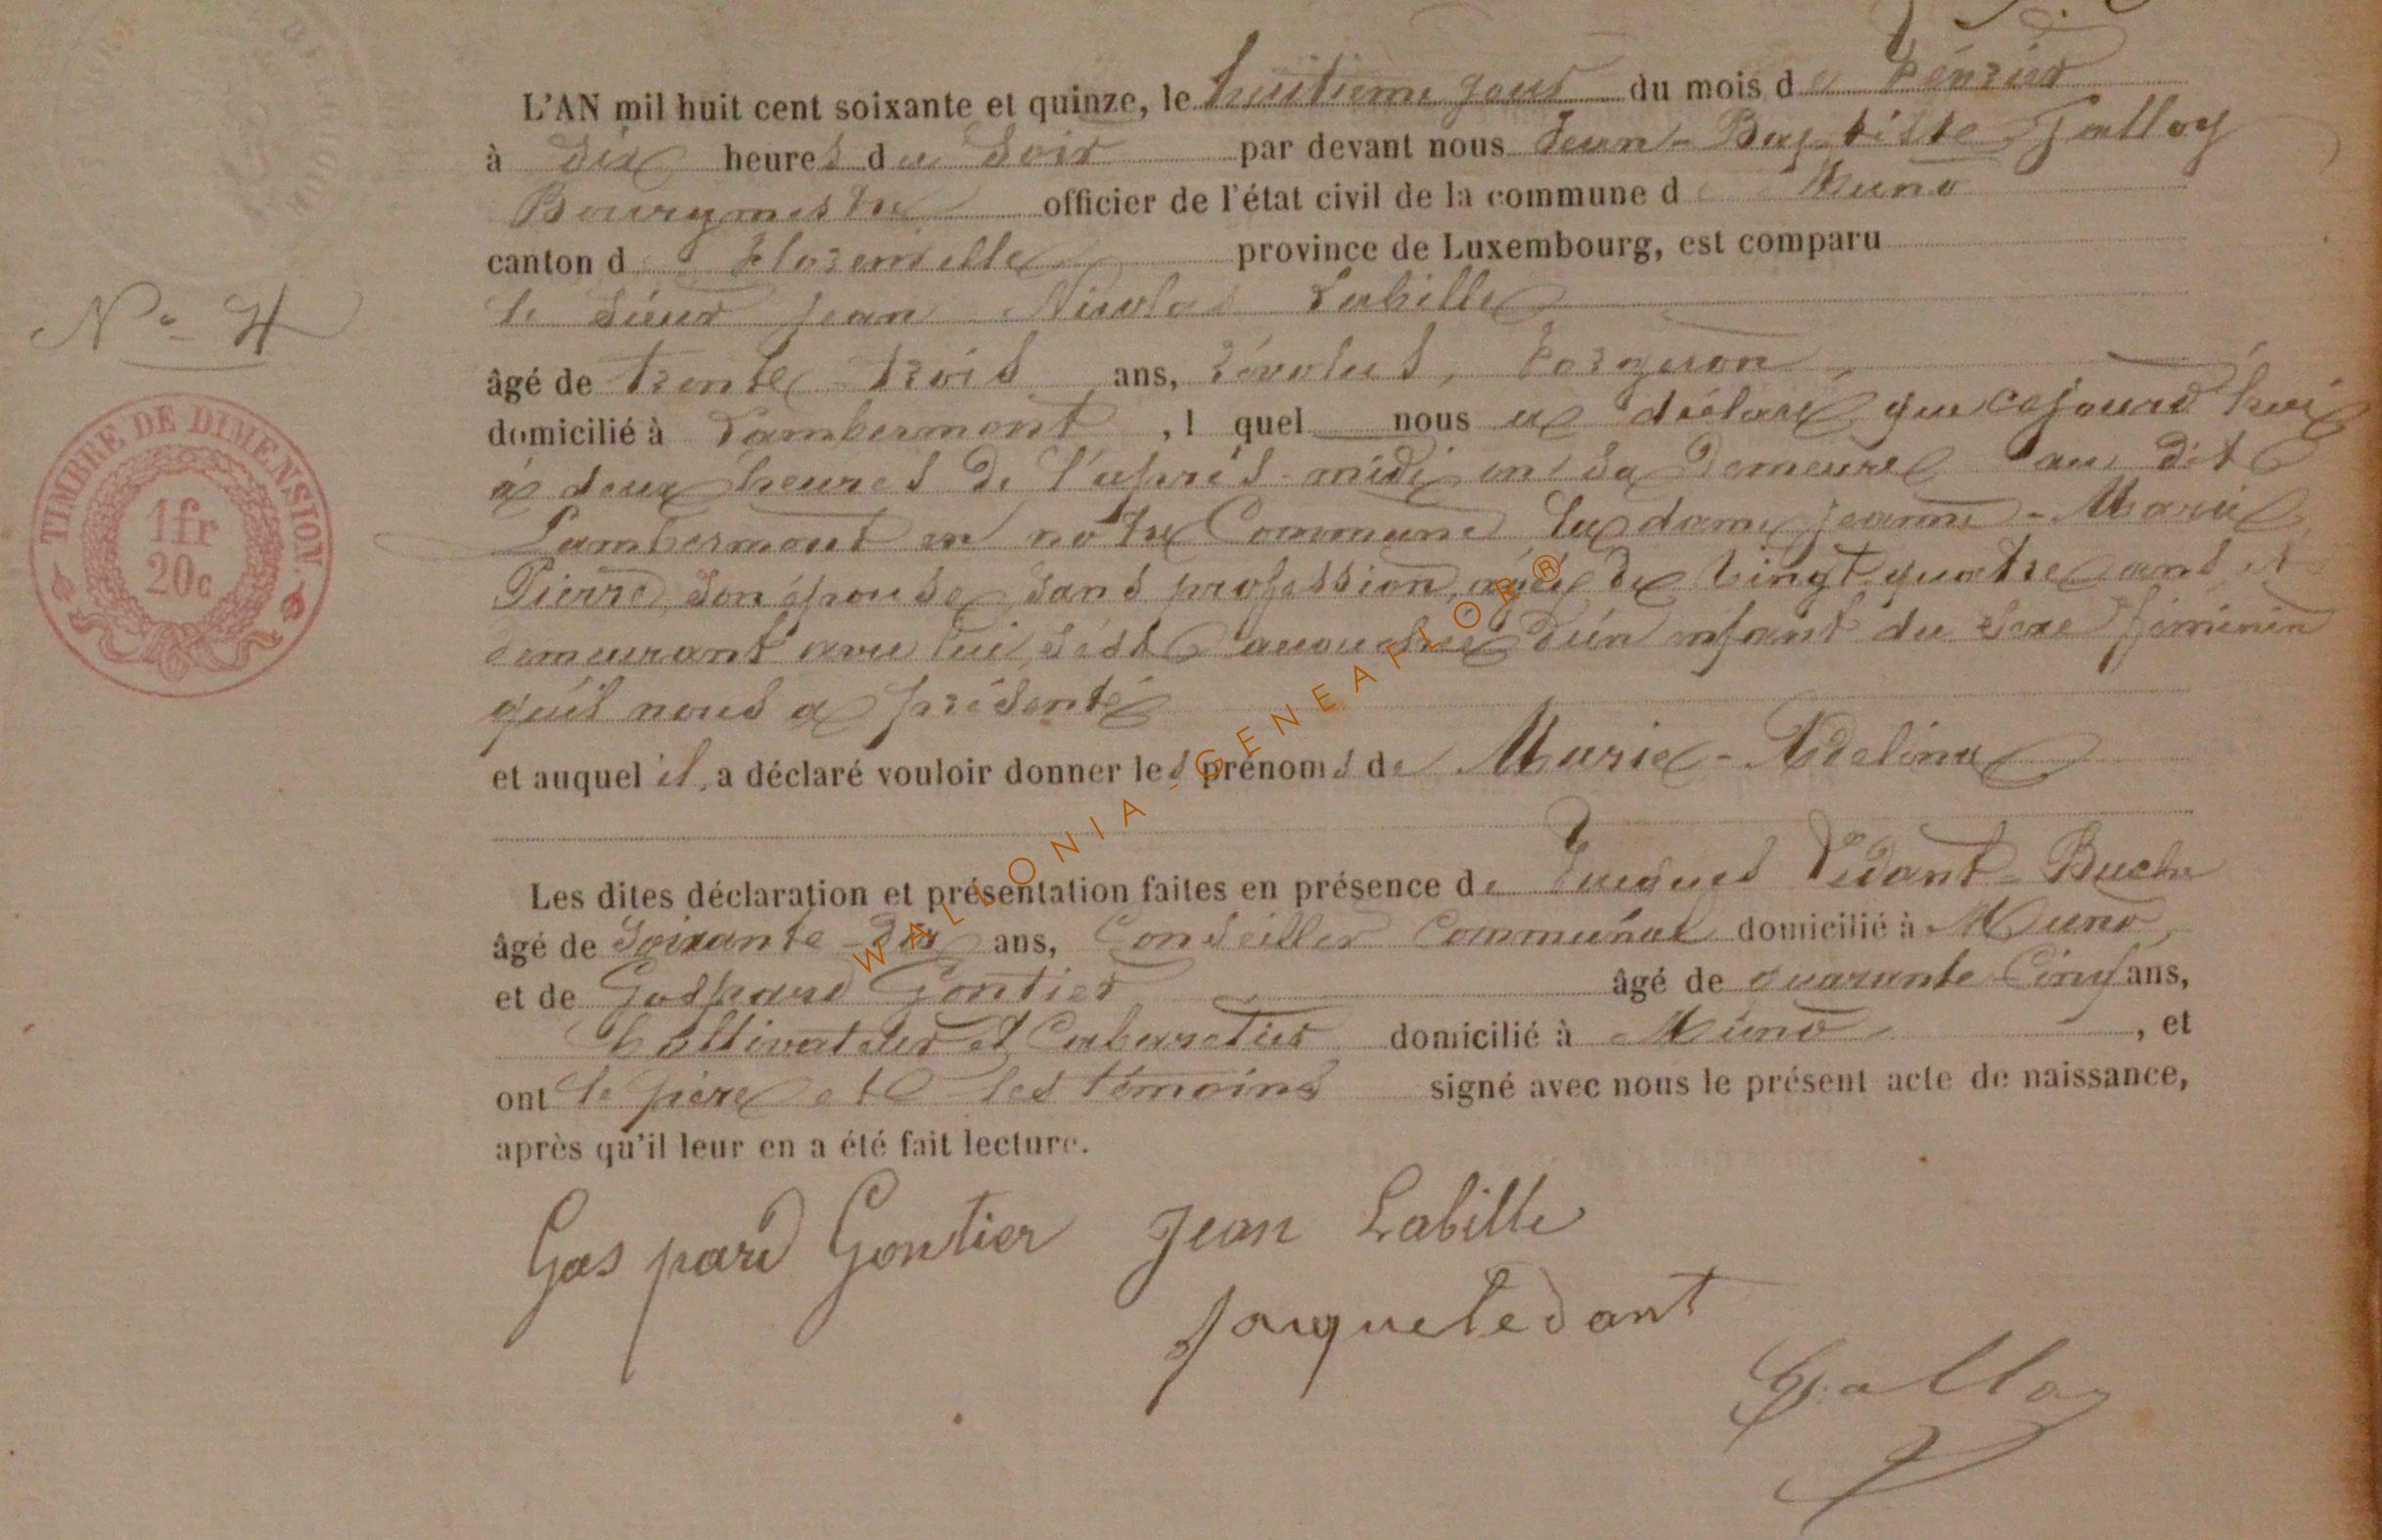 L'AN mil huit cent soixante et quinze, le huitième jour du mois de Février
à Six heures du Soir par devant nous Jean-Baptiste Galloy
Bourgmestre officier de l'état civil de la commune de Muno
canton de Florenville province de Luxembourg, est comparu
le Sieur Jean Nicolas Labille
N° 4
âgé de trente trois ans, révolus, Forgeron,
domicilié à Lambermont, l quel nous a déclaré que cejourd'hui
TIMBRE DE DIMENSION
1fr
20c
à deux heures de l'après-midi en sa Demeure au dit
Lambermont en notre Commune La dame Jeanne-Marie
Pierre, son épouse, sans profession, âgée de vingt quatre ans et
demeurant avec lui, s'est accouchée d'un enfant du sexe féminin
qu'il nous a présenté
et auquel il, a déclaré vouloir donner les prénoms de Marie-Adeline
Les dites déclaration et présentation faites en présence de Jacques Ledant-Buchu
âgé de Soixante-Dix ans, Conseiller Communal domicilié à Muno,
et de Gaspard Gontier âgé de quarante Cinq ans,
Cultivateur et Cabaretier domicilié à Muno, et
ont le père et les témoins signé avec nous le présent acte de naissance,
après qu'il leur en a été fait lecture.
Gaspard Gontier Jean Labille
Jaque Ledant
Galloy
WALLONIA-GENEAFLOR®